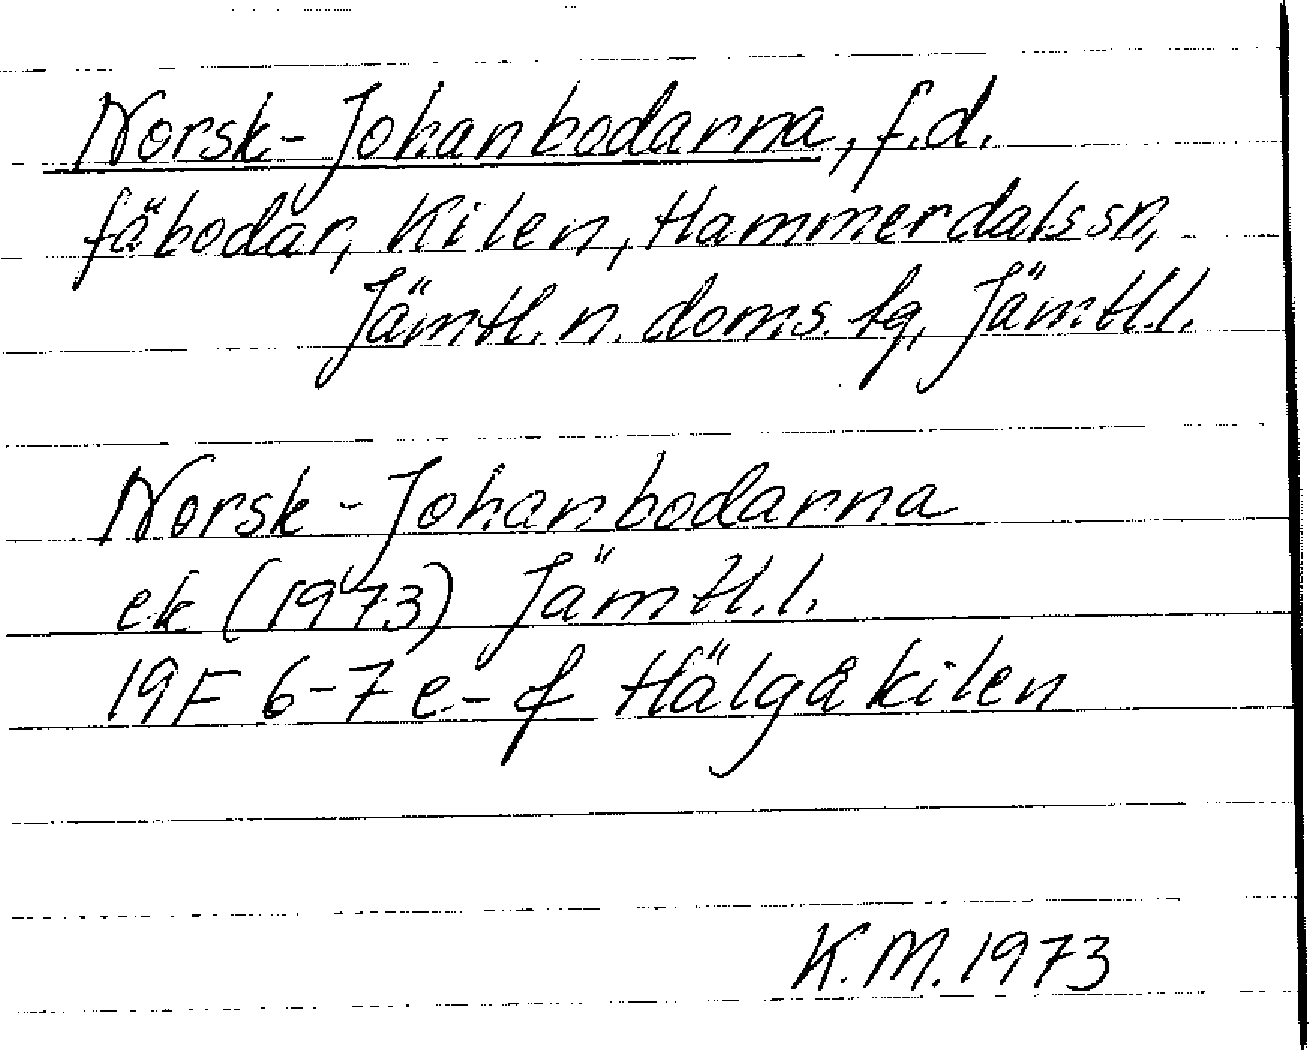 Norsk-Johanbodarna, f.d.
fäbodar, Kilen, Hammerdals sn,
Jämtl. n. doms. tg, Jämtl.l.
Norsk-Johanbodarna
ek (1973) Jämtl.l.
19F 6-7 e-f Hälgåkilen
K.M. 1973